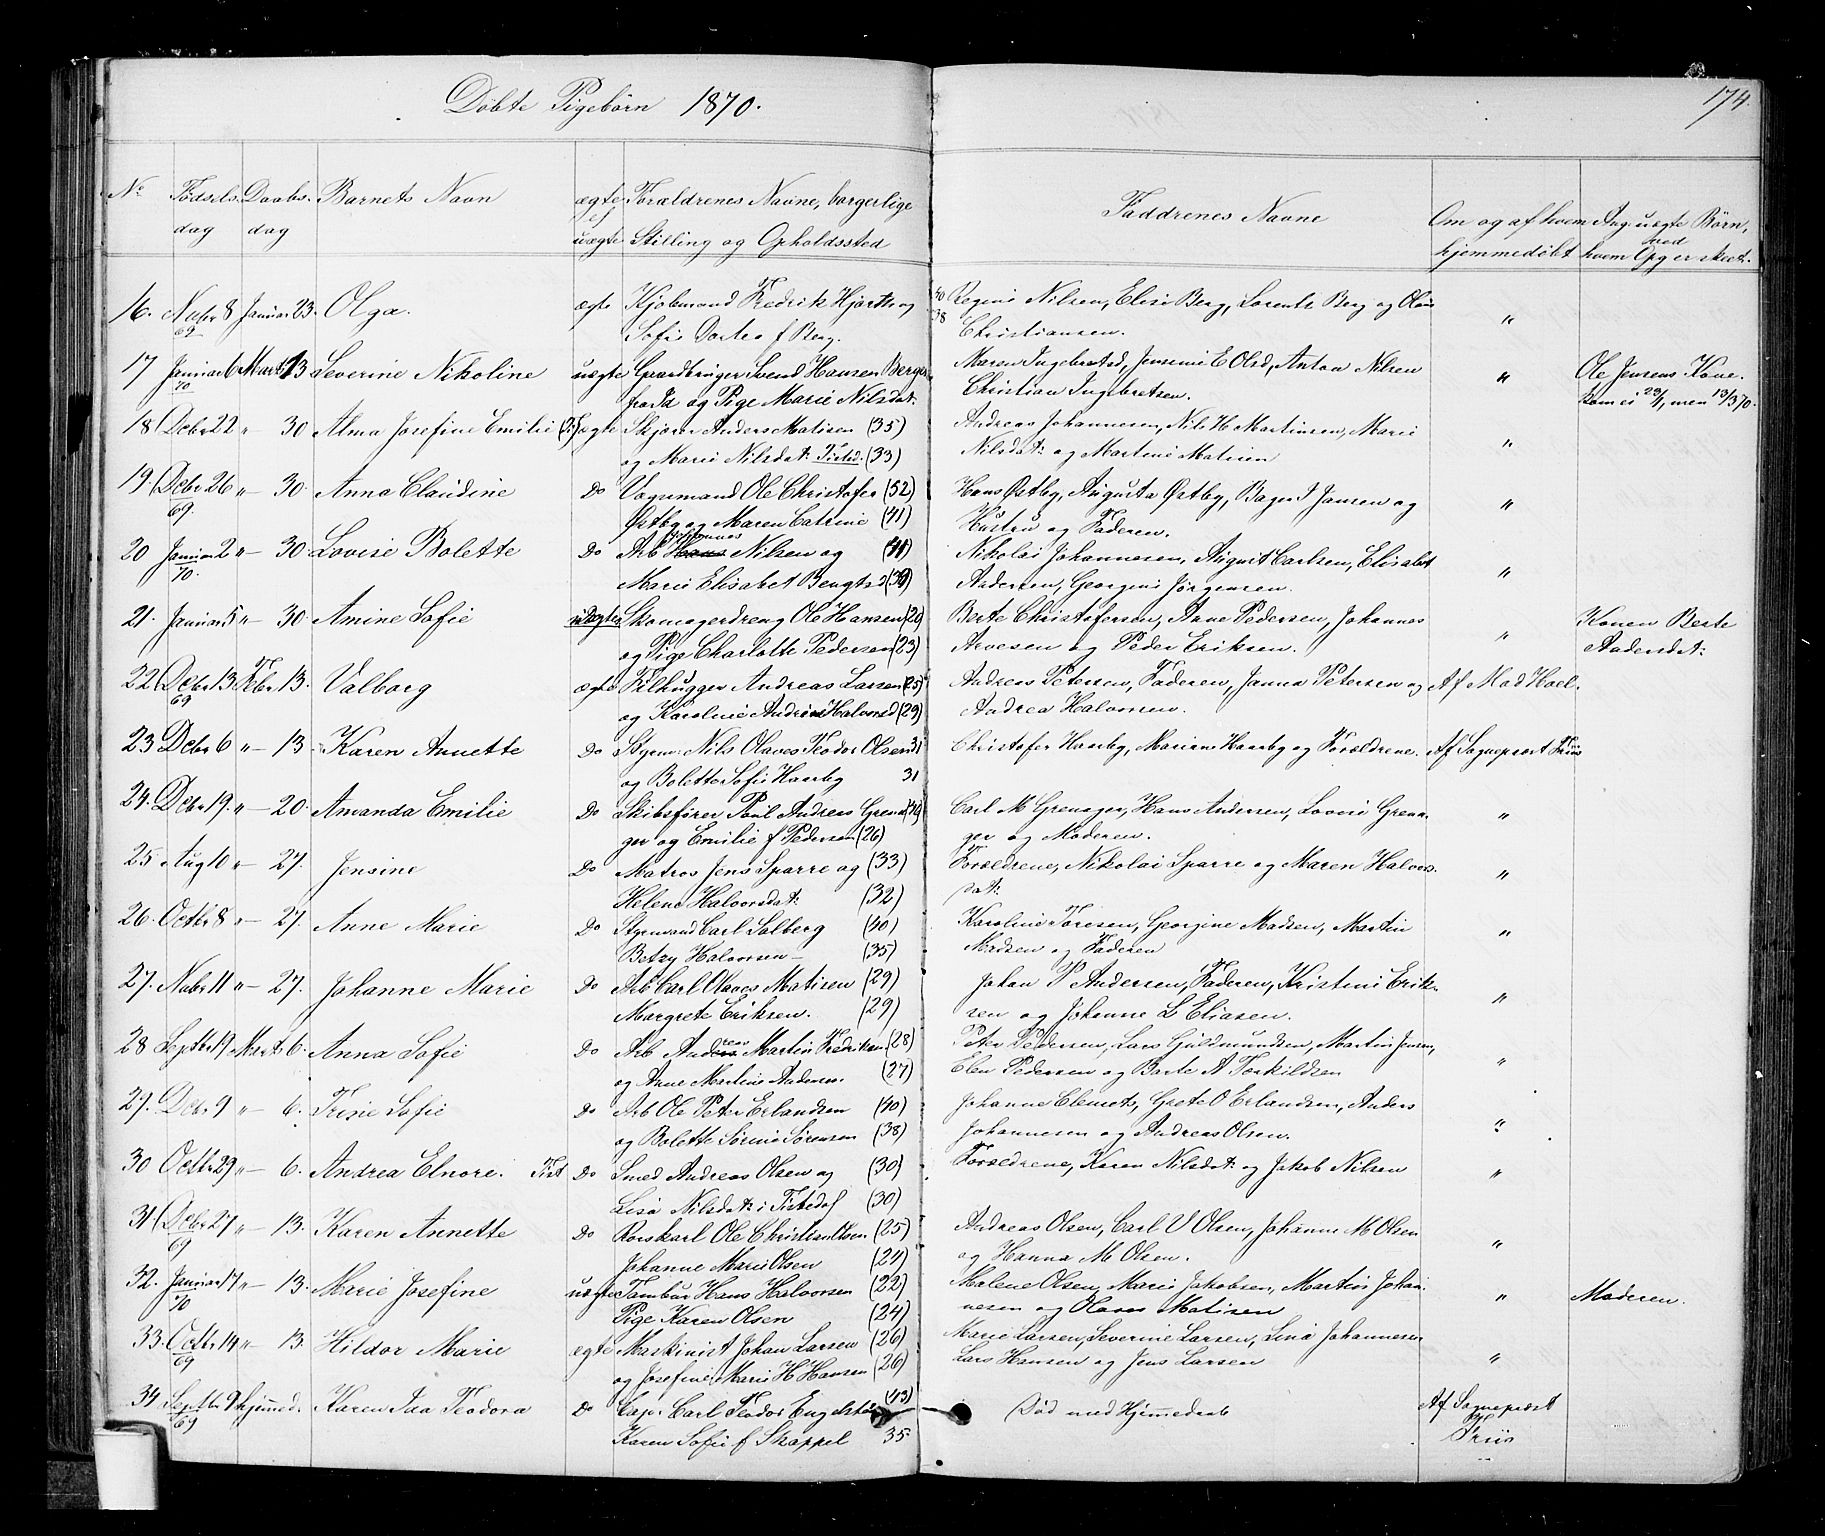 Døbte Pigebørn 1870.
174.
No Fødselsdag Daabsdag Barnets Navn ægte el uægte Forældrenes Navne, borgerlige Stilling og Opholdssted Faddrenes Navne Om og af hvem hjemmedøbt Ang. uægte Børn, ved hvem Opg er skeet.
16. Novbr 8 69 Januar 23. Olga. ægte Kjøbmand Fredrik Hjorth og 40 Regine Nilsen, Elise Berg, Lorentz Berg og Olaus "
Sofie Dortea f Berg. 38 Christiansen.
17 Januar 6 70 Marts 13 Severine Nikoline uægte Gaardbruger Svend Hansen Berger Maren Ingebretsd, Jensine E Olsd, Anton Nilsen " Ole Jensens Kone.
fra Id og Pige Marie Nilsdat: Christian Ingebretsen. kom ei 23/1, men 13/3 70.
18 Decbr 22 " 30 Alma Josefine Emilie (3) ægte Skjører Anders Matisen (35) Andreas Johannesen, Nils H Martinsen, Marie "
og Marie Nilsdat: Tisted. (33) Nilsdat: og Martine Matisen
19 Decbr 26 69. " 30. Anna Claudine Do Vognmand Ole Christofer (52) Hans Østby, Augusta Østby, Bager I Jansen og "
Østby og Maren Catrine (41) Hustru og Faderen.
20 Januar 2 70. " 30. Lovise Bolette Do Arb Johannes Nilsen og (41) Nikolai Johannesen, August Carlsen, Elisabet "
Marie Elisabet Bengtsd (39) Andersen, Georgine Jørgensen.
21. Januar 5 " 30 Amine Sofie uægte Skomagerdreng Ole Hansen (20) Berte Christofersen, Anne Pedersen, Johannes " Konen Berte
og Pige Charlotte Pedersen (23) Arvesen og Peder Eriksen. Andersdat:
22 Decbr 13 69 Febr 13. Valborg ægte Pælhugger Andreas Larsen (25) Andreas Petersen, Faderen, Janna Petersen og Af Mad Hoel.
og Karoline Andrine Halvorsd (29) Andrea Halvorsen.
23 Decbr 6 " 13 Karen Annette Do Styrm: Nils Olaves Teodor Olsen 31 Christofer Haarby, Mariane Haarby og Forældrene. Af Sognepræst Friis
og Bolette Sofie Haarby 31
24. Decbr 19. " 20. Amanda Emilie Do Skibsfører Paul Andreas Grena (49) Carl M Grenager, Hans Andersen, Lovise Grena "
ger og Emilie f Pedersen (26) ger og Moderen.
25 Aug 10 " 27. Jensine Do Matros Jens Sparre og (33) Forældrene, Nikolai Sparre og Maren Halvors "
Helene Halvorsdat: (32) dat:
26. Octbr 8 " 27. Anne Marie Do Styrmand Carl Solberg (40) Karoline Toresen, Georgine Madsen, Martin "
Betzy Halvorsen (35) Madsen og Faderen
27. Novbr 11 " 27. Johanne Marie Do Arb Carl Olaves Matisen (29) Johan P Andersen, Faderen, Kristine Erik "
Margrete Eriksen. (29) sen og Johanne L Eliasen.
28 Septbr 19 Marts 6. Anna Sofie Do Arb Andreas Martin Fredriksen (28) Peter Pedersen, Lars Guldmundsen, Martin Jensen, "
og Anne Martine Andersen. (27) Elen Pedersen og Berte A Torkildsen
29. Decbr 9 " 6. Trine Sofie Do Arb Ole Peter Erlandsen (40) Johanne Clemets, Grete O Erlandsen, Anders "
og Bolette Sørine Sørensen (38) Johannesen og Andreas Olsen.
30 Octbr 29 " 6. Andrea Elnore. Tist Do Smed Andreas Olsen og (30) Forældrene, Karen Nilsdat: og Jakob Nilsen "
Lisa Nilsdat: i Tistedal (30)
31 Decbr 27 69 " 13. Karen Annette Do Rorskarl Ole Christian Olsen (25) Andreas Olsen, Carl V Olsen, Johanne M Olsen "
Johanne Marie Olsen (24) og Hanna M Olsen.
32. Januar 17 70 " 13. Marie Josefine uægte Tambur Hans Halvorsen (22) Malene Olsen, Marie Jakobsen, Martin Johan " Moderen.
Pige Karen Olsen (24) nesen og Olaves Matisen
33. Octbr 14 69 " 13. Hildor Marie ægte Maskinist Johan Larsen (26) Marie Larsen, Severine Larsen, Lina Johannesen "
og Josefine Marie H Hansen (26) Lars Hansen og Jens Larsen
34 Septbr 9 69 hjemmed. Karen Ida Teodora Do Capt. Carl Teodor Engelstad (43) Død med Hjemmedaab Af Sognepræst
Karen Sofie f Skappel 35 Friis